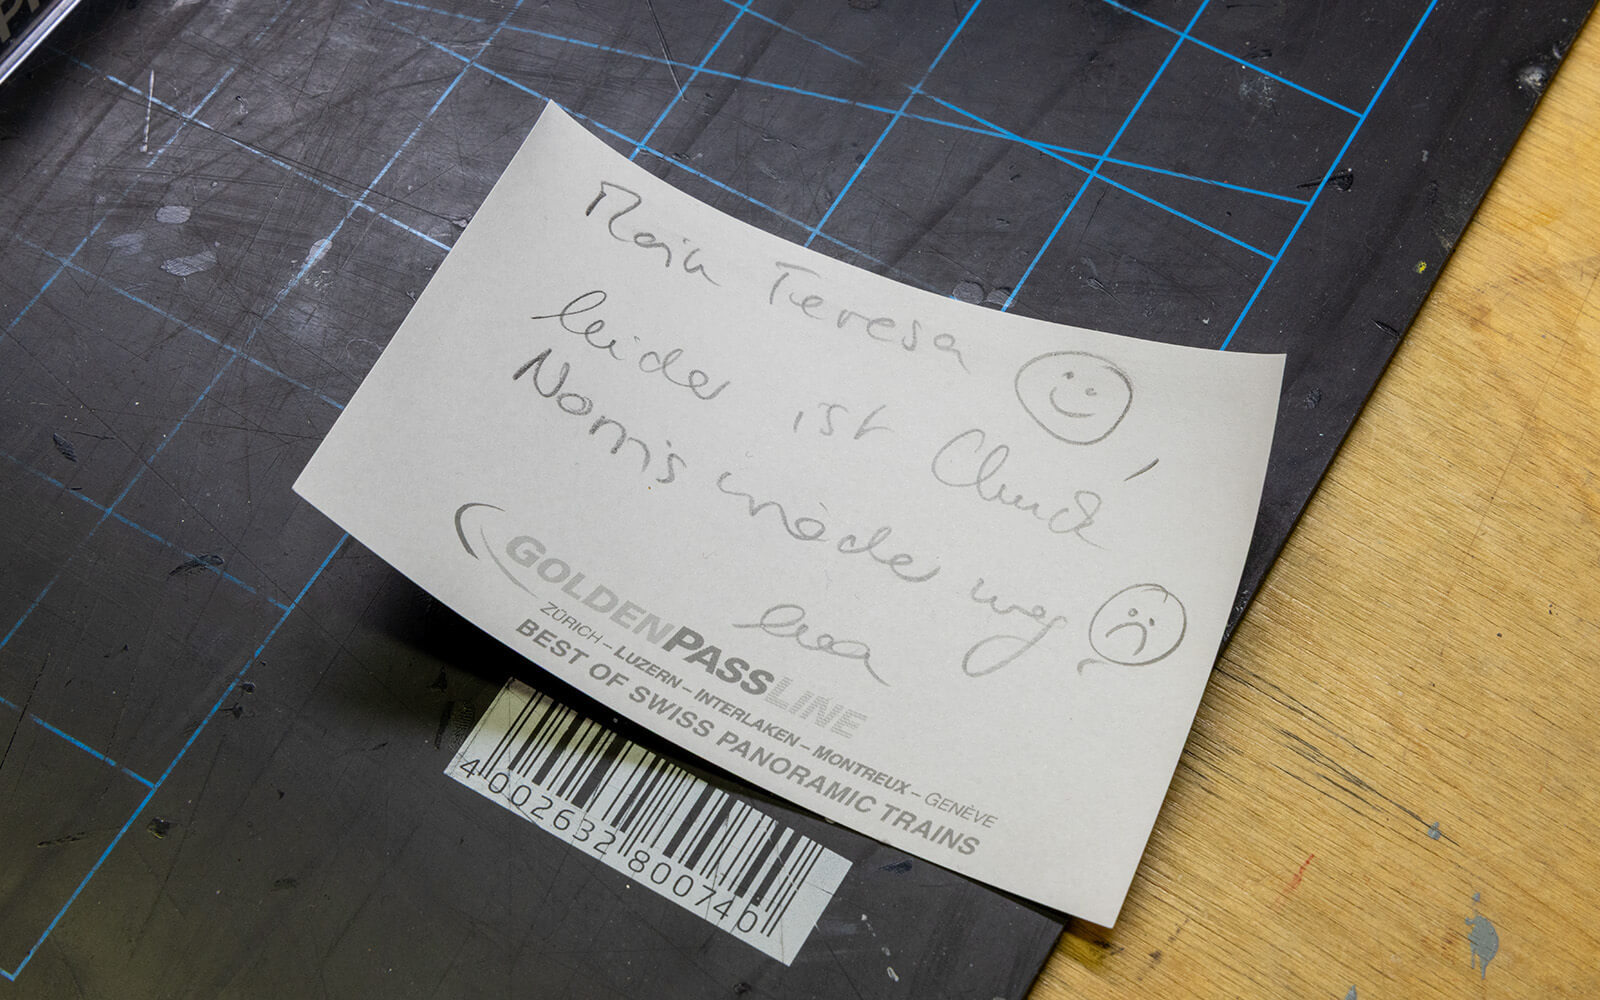 Maria Teresa
leider ist Chuck
Norris wieder weg
Lea
GOLDENPASSLINE
ZÜRICH – LUZERN – INTERLAKEN – MONTREUX – GENÈVE
BEST OF SWISS PANORAMIC TRAINS
4 002632 800740